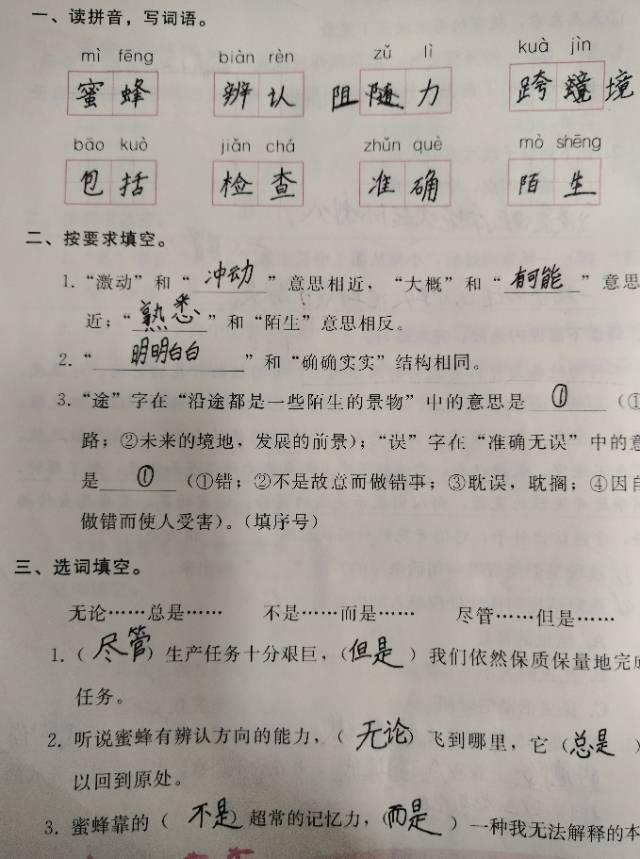 一、读拼音，写词语。
mì fēng biàn rèn zǔ lì kuà jìn
蜜蜂 辨认 阻力 跨境
bāo kuò jiǎn chá zhǔn què mò shēng
包括 检查 准确 陌生
二、按要求填空。
1.“激动”和“冲动”意思相近，“大概”和“有可能”意思
近；“熟悉”和“陌生”意思相反。
2.“明明白白”和“确确实实”结构相同。
3.“途”字在“沿途都是一些陌生的景物”中的意思是①（①
路；②未来的境地，发展的前景）；“误”字在“准确无误”中的意
是①（①错；②不是故意而做错事；③耽误，耽搁；④因自
做错而使人受害）。（填序号）
三、选词填空。
无论……总是…… 不是……而是…… 尽管……但是……
1.（尽管）生产任务十分艰巨，（但是）我们依然保质保量地完成
任务。
2. 听说蜜蜂有辨认方向的能力，（无论）飞到哪里，它（总是）
以回到原处。
3. 蜜蜂靠的（不是）超常的记忆力，（而是）一种我无法解释的本